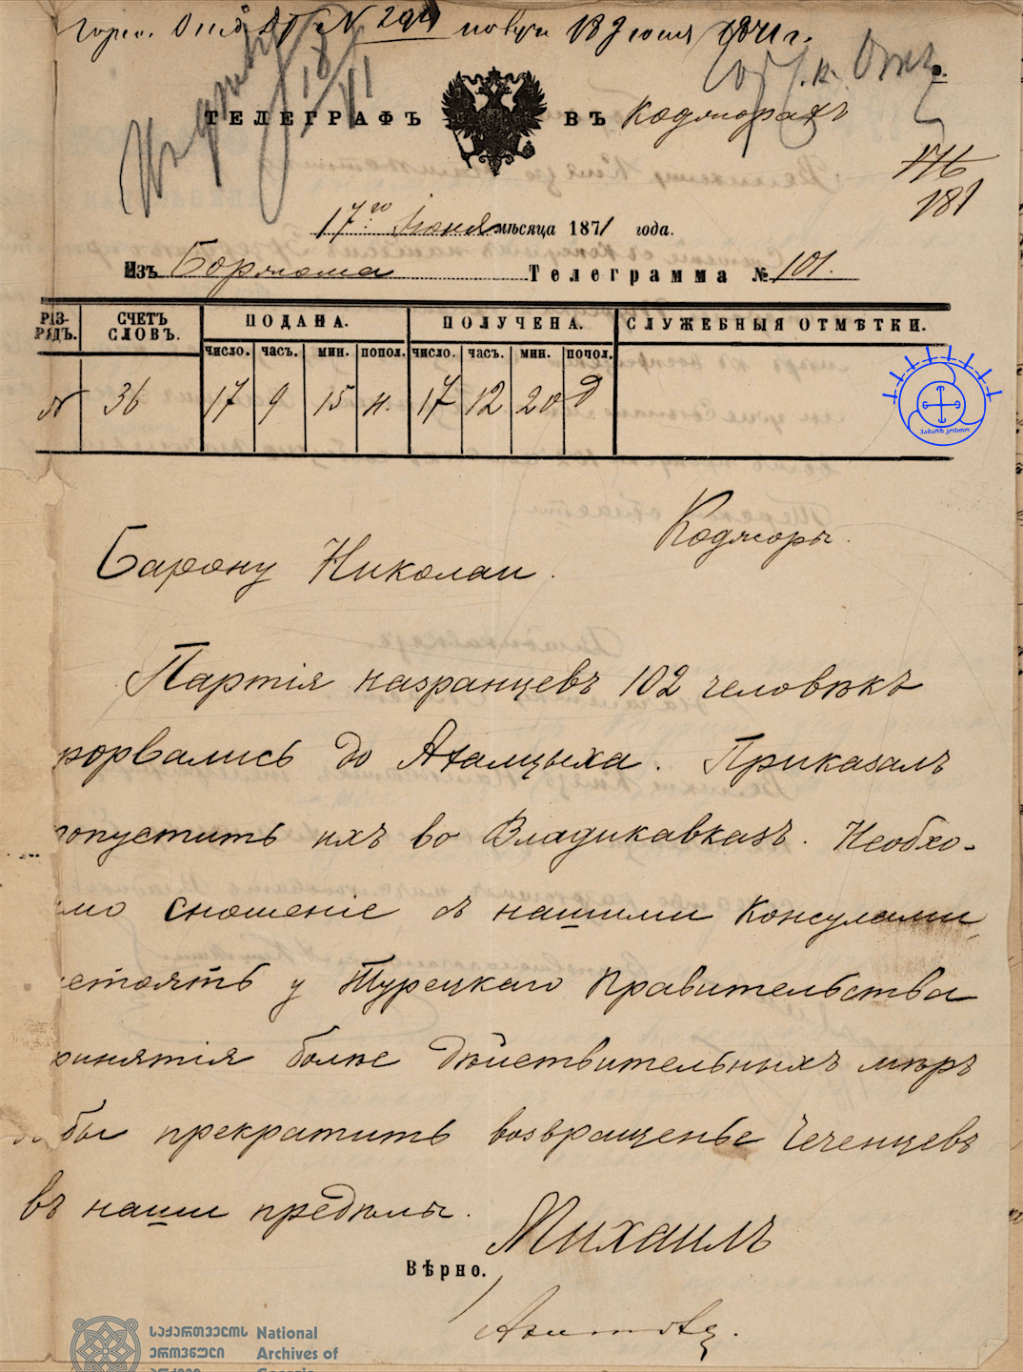 № 291 получ 18 Іюня 1871 г.
18/VI
ТЕЛЕГРАФЪ ВЪ Коджорахъ
176
181
17го Іюня мѣсяца 1871 года.
Изъ Боржома Телеграмма № 101.
РАЗ-РЯДЪ. СЧЕТЪ СЛОВЪ. ПОДАНА. ПОЛУЧЕНА. СЛУЖЕБНЫЯ ОТМѢТКИ.
число. часъ. мин. попол. число. часъ. мин. попол.
36 17 9 15 п. 17 12 20
Коджоры.
Барону Николаи.
Партія назранцевъ 102 человѣкъ
рорвались до Ахалцыха. Приказалъ
опустить ихъ во Владикавказъ. Необхо-
мо сношеніе съ нашими Консулами,
стоять у Турецкаго Правительства
ринятія болѣе дѣйствительныхъ мѣръ
бы прекратить возвращенье Чеченцевъ
въ наши предѣлы.
Михаилъ
Вѣрно.
საქართველოს National
ეროვნული Archives of
არქივი Georgia